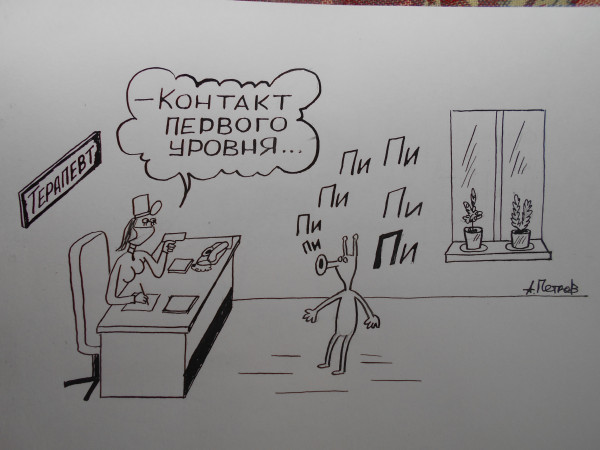 ТЕРАПЕВТ
–КОНТАКТ
ПЕРВОГО
УРОВНЯ...
Пи Пи
Пи Пи
Пи Пи
пи
А.Петров